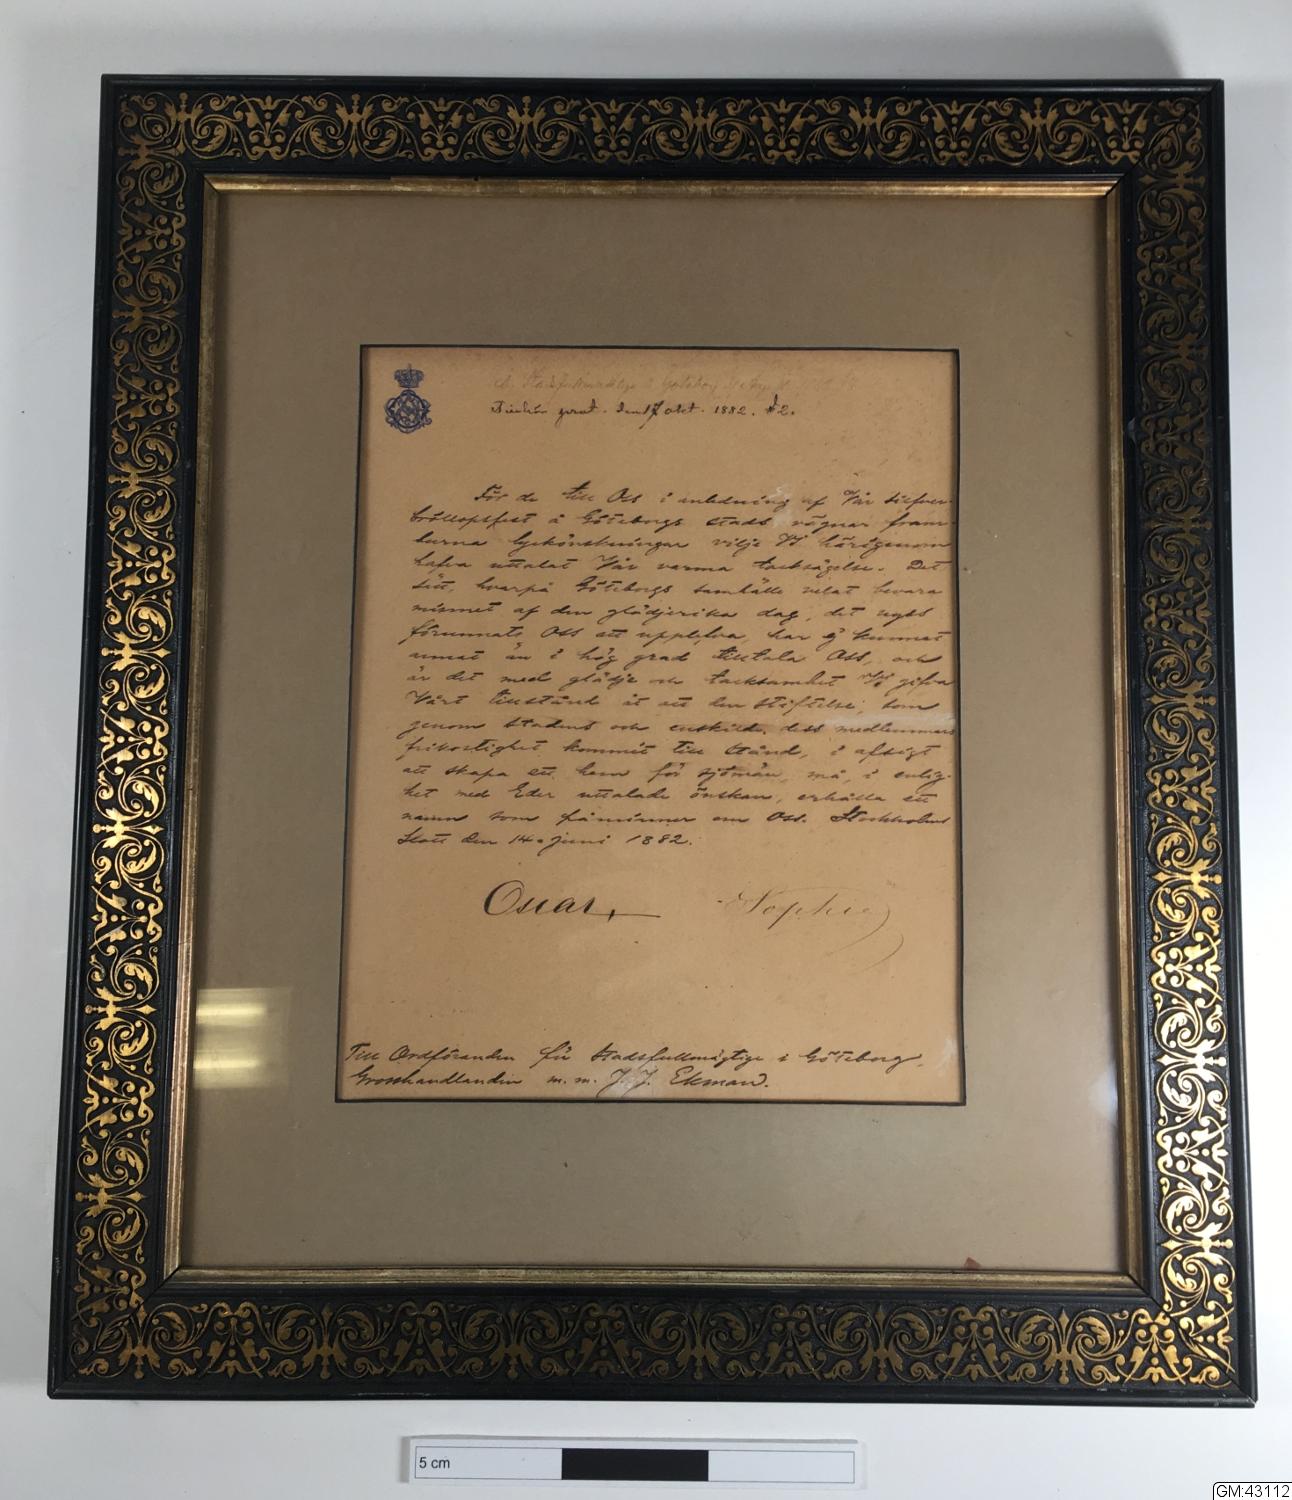 Stadsfullmäktige i Göteborg
den 17 okt. 1882. § 2.
För de till Oss i anledning af Vår silfver-
bröllopsfest å Göteborgs stads vägnar fram-
burna lyckönskningar vilje Vi härigenom
hafva uttalat Vår varma tacksägelse. Det
sätt, hvarpå Göteborgs samhälle velat bevara
minnet af den glädjerika dag, det nyss
förunnats Oss att upplefva, har ej kunnat
annat än i hög grad tilltala Oss, och
är det med glädje och tacksamhet Vi gifva
Vårt tillstånd åt att den stiftelse, som
genom stadens och enskilde dess medlemmars
frikostighet kommit till stånd, i afsigt
att skapa ett hem för sjömän, må, i enlig-
het med Eder uttalade önskan, erhålla ett
namn som påminner om Oss. Stockholms
Slott den 14 juni 1882.
Oscar Sophie
Till Ordföranden för Stadsfullmägtige i Göteborg,
Grosshandlanden m. m. J. J. Ekman.
5 cm
GM:43112